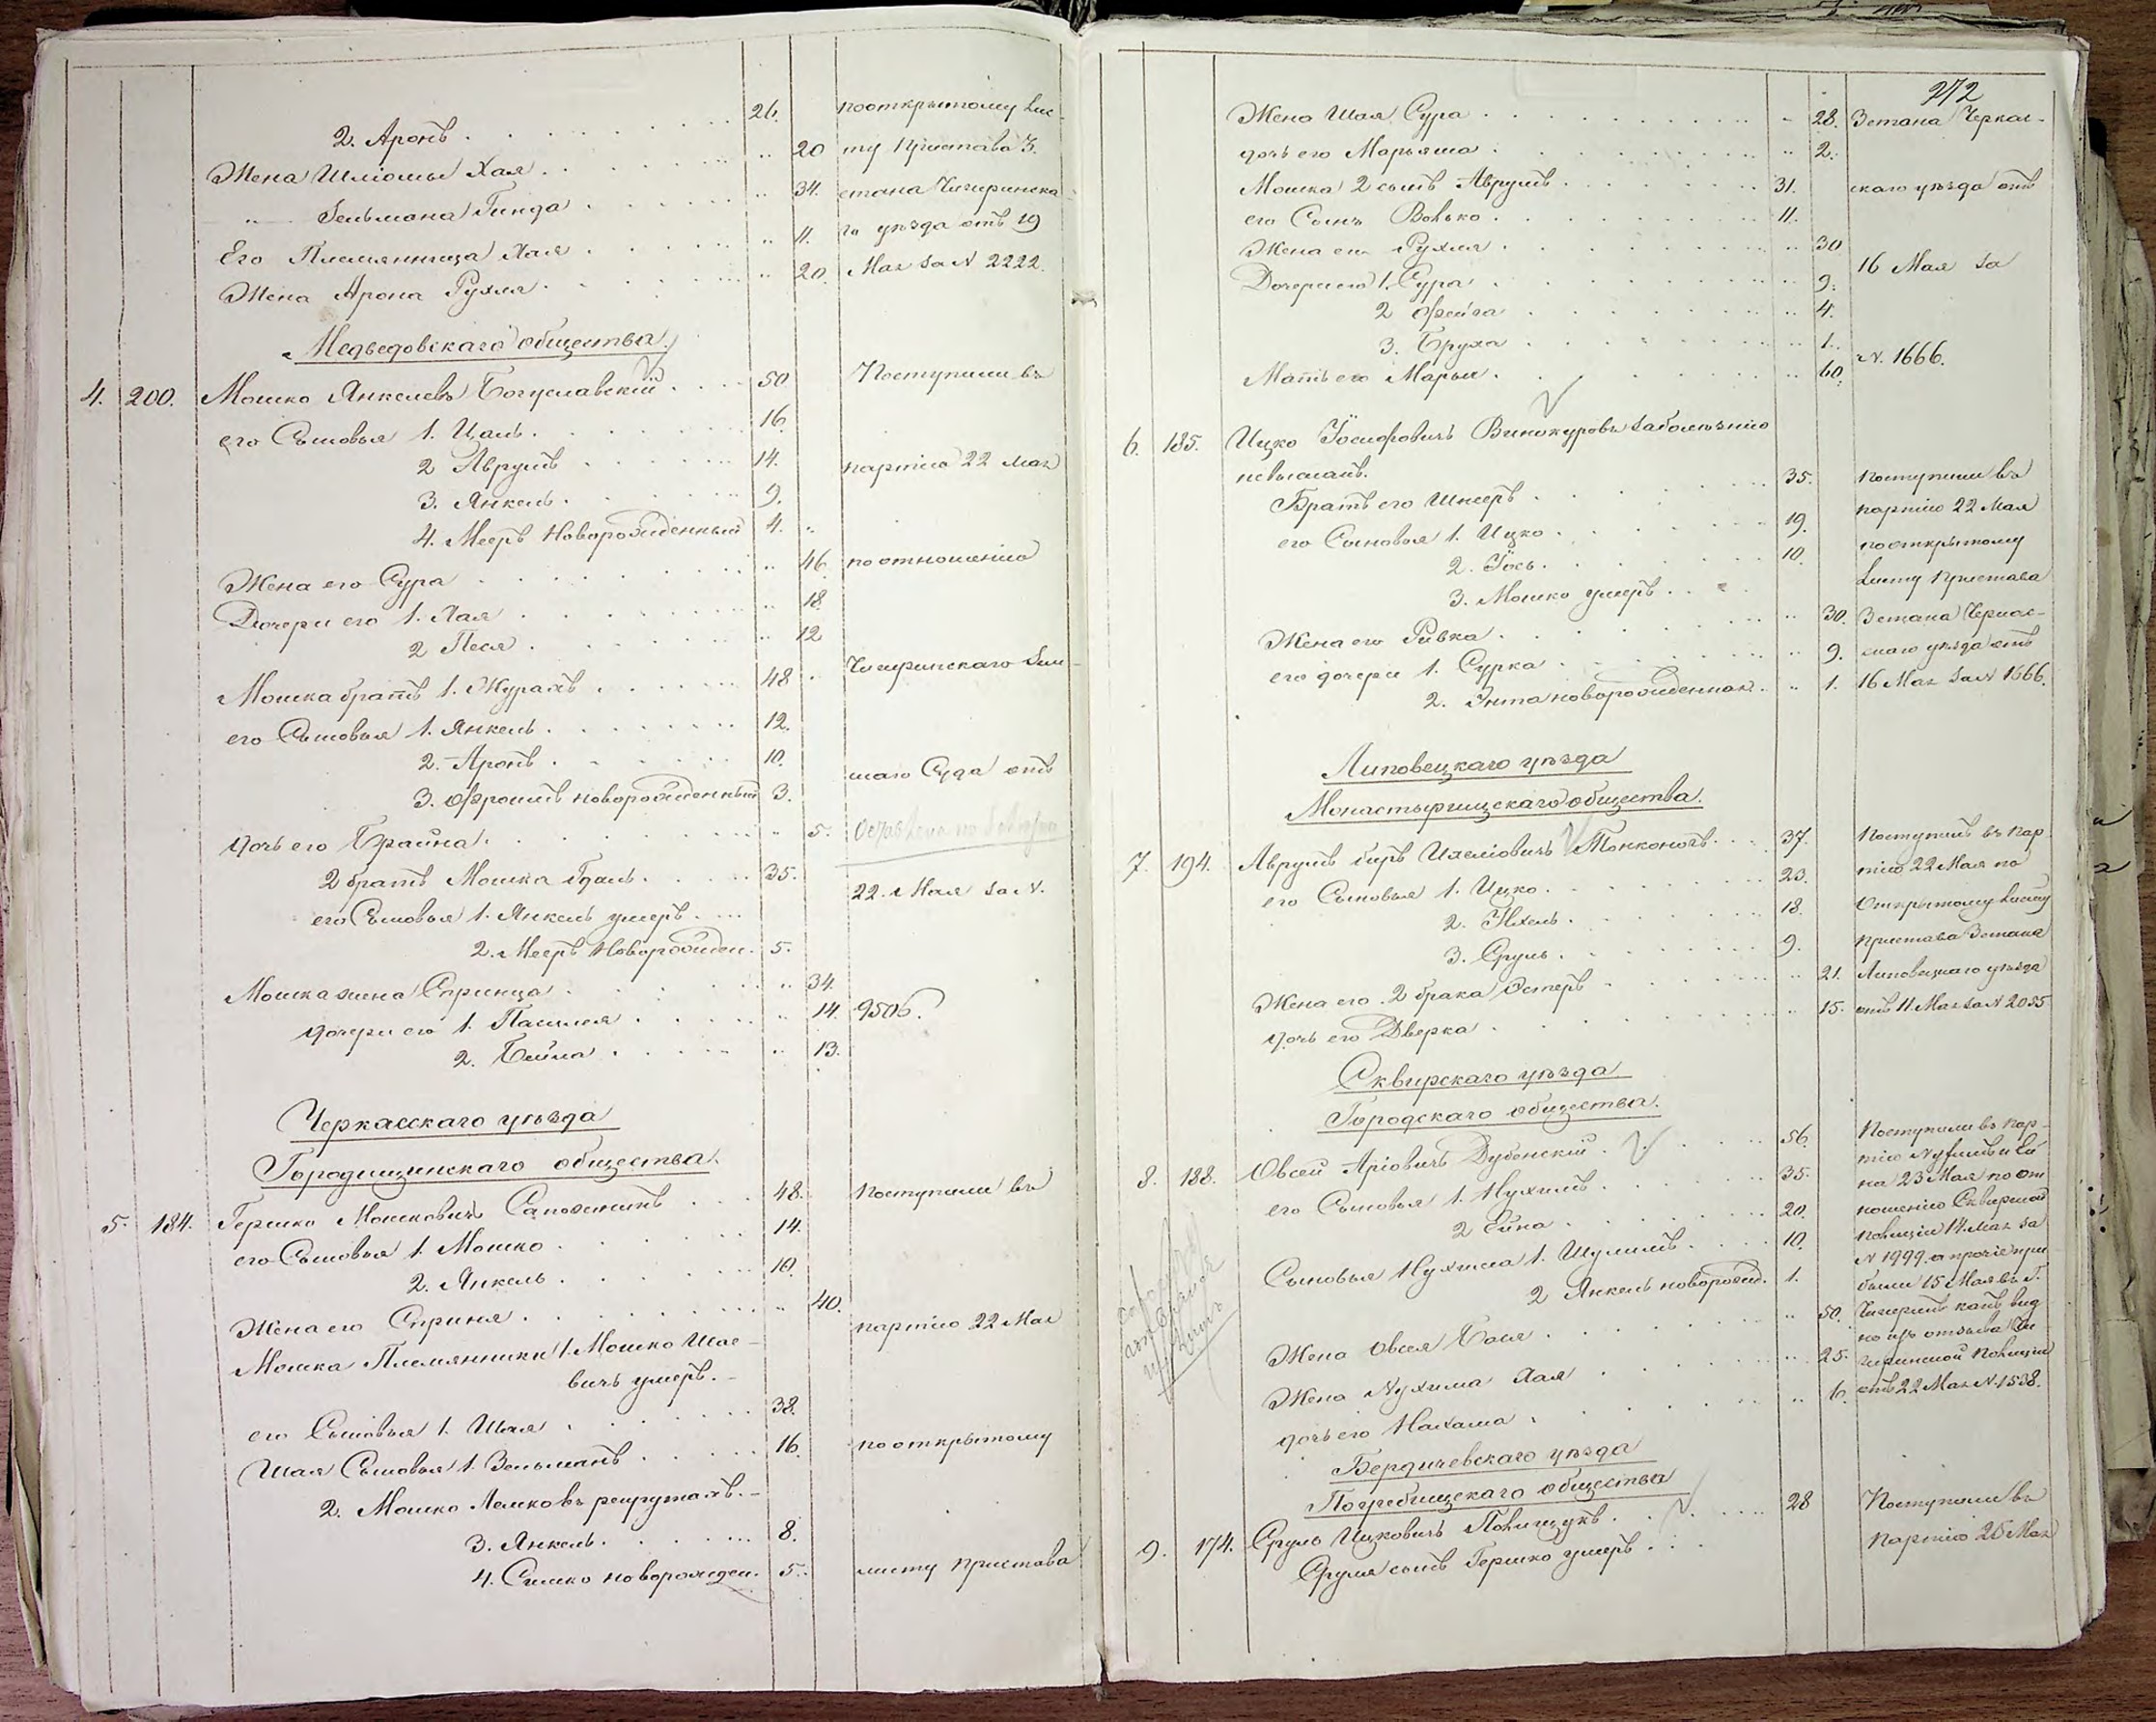 2. Аронъ 26. по открытому Лис-
Жена Шліомы Хая 20 ту Пристава 3.
" Гельмана Гинда 34. стана Чигиринска
Его Племянница Хая 11. го уѣзда отъ 19
Жена Арона Рухля 20. Мая за N 2222.
Медведовскаго общества.
4. 200. Мошко Янкелевъ Богуславскій 50 Поступили въ
его Сыновья 1. Цаль 16.
2 Аврумъ 14. партію 22 мая
3. Янкель 9.
4. Мееръ Новорожденный 4.
Жена его Сура 46. по отношенію
Дочери его 1. Хая 18.
2 Песя 12
Мошка братъ 1. 48. Чигиринскаго Зем-
его Сыновья 1. Янкель 12.
2. Аронъ 10. скаго Суда отъ
3. Эфроимъ новорожденный 3.
дочь его Брайна 5.
2 братъ Мошка 35. 22. Мая за N.
его Сыновья 1. Янкель умеръ
2. Мееръ Новорожден. 5.
Мошка жена Спринца 34.
дочери его 1. 14. 9506.
2. Бейла 13.
Черкасскаго уѣзда
Городищинскаго общества.
5. 184. Гершко Мошковичъ Сапожникъ 48. Поступили въ
его Сыновья 1. Мошко 14.
2. Янкель 10.
Жена его Сприня 40. партію 22 Мая
Мошка Племянники 1. Мошко Шае-
вичъ умеръ.
его Сыновья 1. Шая 38.
Шая Сыновья 1. Зельманъ 16. по открытому
2. Мошко Лемковъ рекрутахъ.
3. Янкель 8.
4. Симко новорожден. 5. листу пристава
272
Жена Шая Сура 28. 3 стана Черкас-
дочь его Марьяма 2.
Мошка 2 сынъ Аврумъ 31. скаго уѣзда отъ
его Сынъ Волько 11.
Жена его Рухля 30
Дочери его 1. Сура 9. 16 Мая за
2 Фейга 4.
3. Бруха 1.
Мать его Марья 60. N. 1666.
6. 185. Ицко Іосифовичъ Винокуровъ заболѣзнію
невысланъ.
Братъ его Шмеръ 35. Поступили въ
его Сыновья 1. Ицко 19. партію 22 Мая
2. Іось 10. по открытому
3. Мошко умеръ Листу Пристава
Жена его Ривка 30. 3 стана Черкас-
его дочери 1. Сурка 9. скаго уѣзда отъ
2. Энта новорожденная 1. 16 Мая за N 1666.
Липовецкаго уѣзда
Монастырищскаго общества.
7. 194. Аврумъ Беръ Ихеліовичъ Тонконогъ 37. Поступилъ въ пар
его Сыновья 1. Ицко 23. тію 22 Мая по
2. Ихель 18. Открытому Листу
3. Сруль 9. Пристава 3 стана
Жена его 2 брака Эстеръ 21. Липовецкаго уѣзда
дочь его Дверка 15. отъ 11 Мая за N 2055
Сквирскаго уѣзда
Городскаго общества.
8. 188. Овсей Аріовичъ Дубенскій 56 Поступили въ пар-
его Сыновья 1. Нухимъ 35. тію Нухимъ и Ей
2 Ейна 20. на 23 Мая по от
Сыновья Нухима 1. Шулимъ 10. ношенію Сквирской
2 Янкель новорожд. 1. полиціи 14 Мая за
N 1999. а прочіе при
были 15 Мая въ г.
Жена Овсея Бася 50. Чигиринъ какъ вид
но изъ отзыва Чи
Жена Нухима Хая 25. гиринской Полиціи
дочь его Нахама 6. отъ 22 Мая N. 1538.
Бердичевскаго уѣзда
Погребищскаго общества
9. 174. Сруль Ицковичъ Полищукъ 28 Поступили въ
Сруля сынъ Гершко умеръ партію 25 Мая